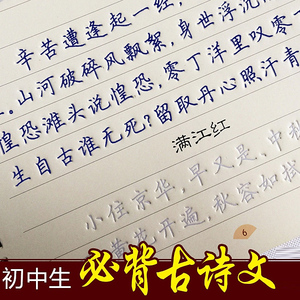 辛苦遭逢起一经,
。山河破碎风飘絮,身世浮沉
惶恐滩头说惶恐,零丁洋里叹零
生自古谁无死?留取丹心照汗青
满江红
小住京华,早又是,中秋
黄花开遍,秋容如拭
6
初中生
必背古诗文